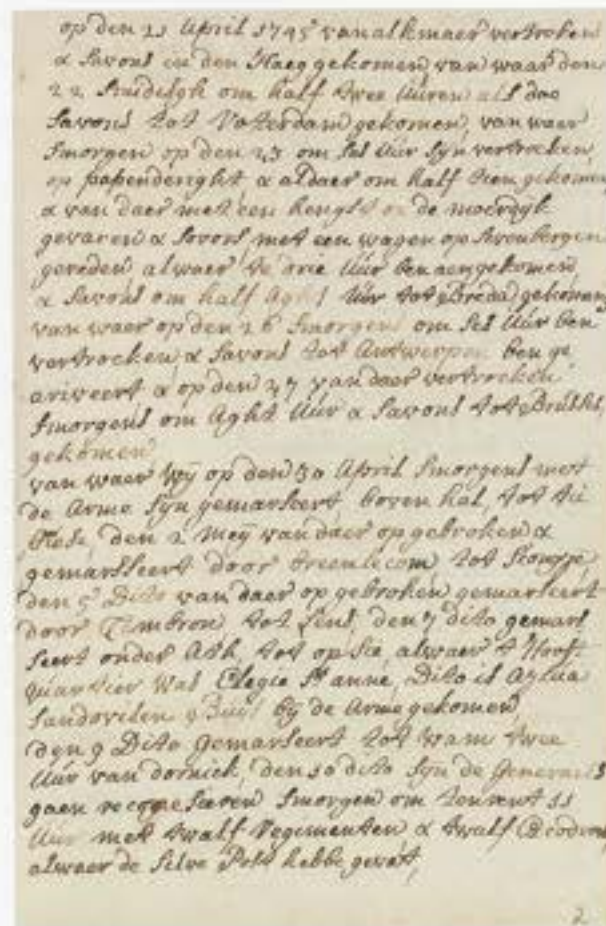 op den 21 April 1745 van alkmaer vertroken
& savons in den Haeg gekomen van waar den
22 smidelgh om half twee Uuren als doe
savons tot Roterdam gekomen, van waer
smorgen op den 23 om ses Uur syn vertrocken
op papenderight & aldaer om half tien gekomen
& van daer met een hengst de moerdyk
gevaren & savons met een wagen op sevenbergen
gereden alwaer te drie Uur ben aengekomen
& savons om half Aght Uur tot Breda gekomen
van waer op den 26 smorgens om ses Uur ben
vertrocken & savons tot Antwerpen ben ge
ariveert & op den 27 van daer vertrocken
smorgens om Aght Uur & savons tot Brussel
gekomen
van waer wÿ op den 30 April smorgens met
de Arme syn gemarseert, boven hal, tot
den 2 meÿ van daer op gebroken &
gemarsseert door tot
den 5 Dito van daer op gebroken gemarseert
door tot Lens, den 7 dito gemars
seert onder Ath, tot op sie, alwaer t Hooft
quartier was St anne, Dito is
bÿ de Arme gekomen
den 9 Dito Gemarseert tot twee
Uur van dornick, den 10 dito syn de Generaels
gaen smorgen om 11
Uur met twalf Regementen & twalf
alwaer de selve hebbe gevat,
2